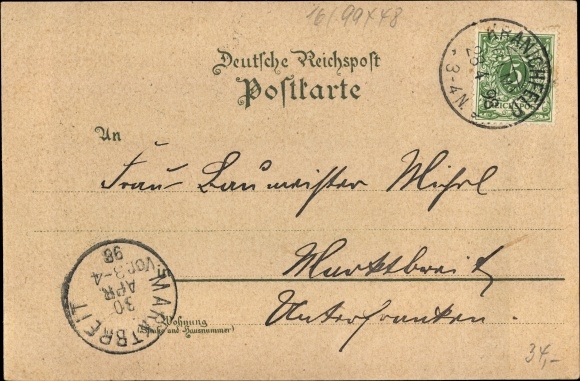 16/99x48
Deutsche Reichspost
Postkarte
KRANICHFELD
29 4 98
3-4 N
5
An
Frau Baumeister Michel
Marktbreit
Unterfranken.
Wohnung
(Straße und Hausnummer)
MARKTBREIT
30
APR
VOR 3-4
98
34,-